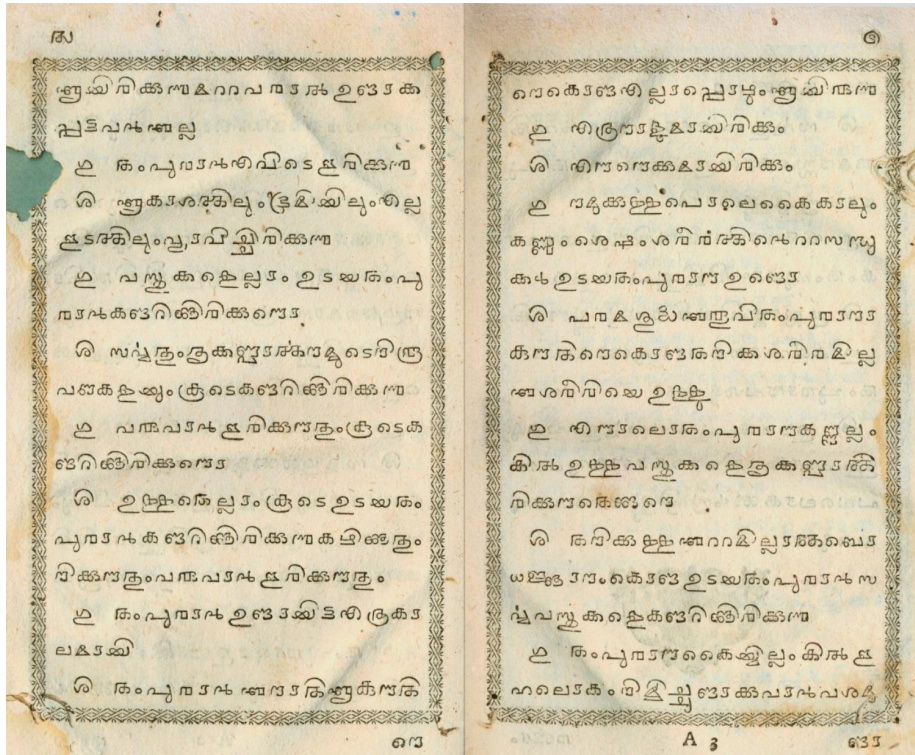 ൪
ആയിരിക്കുന്ന മററവരാൽ ഉണ്ടാക
പ്പട്ടവൻഅല്ല
ഗു തംപുരാൻഎവിടെഇരിക്കുന്ന
ശി ആകാശത്തിലും ഭൂമിയിലുംഎല്ലാ
ഇടത്തിലുംവ്യാപിച്ചിരിക്കുന്ന
ഗു വസ്തുക്കളെല്ലാം ഉടയതംപു
രാൻകണ്ടറിഞ്ഞിരിക്കുന്നൊ
ശി സർവ്വതുംതൃക്കണ്ണാൽനമ്മുടെനിരൂ
പണകളയും കൂടെകണ്ടറിഞ്ഞിരിക്കുന്ന
ഗു വരുവാൻ ഇരിക്കുന്നതും കൂടെക
ണ്ടറിഞ്ഞിരിക്കുന്നൊ
ശി ഉള്ളതെല്ലാം കൂടെ ഉടയതം
പുരാൻകണ്ടറിഞ്ഞിരിക്കുന്നകഴിഞ്ഞതും
നിക്കുന്നതുംവരുവാൻ ഇരിക്കുന്നതും
ഗു തംപുരാൻ ഉണ്ടായിട്ട എത്രകാ
ലമായി
ശി തംപുരാൻ അനാതിആകുന്നതി
നെ
൫
നെകൊണ്ടഎല്ലാപ്പൊഴും ആയിരുന്ന
ഗു എത്രനാളുമായിരിക്കും
ശി എന്നെക്കുമായിരിക്കും
ഗു നമുക്കുള്ളപൊലെകൈകാലും
കണ്ണും ശെഷം ശരീരത്തിന്റെററസന്ധു
ക്കൾ ഉടയതംപുരാന ഉണ്ടൊ
ശി പരമശുദ്ധഅരൂപിതംപുരാനാ
കുന്നതിനെകൊണ്ടതനിക്കശരീരമില്ല
അശരീരിയെ ഉള്ളു
ഗു എന്നാലൊതംപുരാനകണ്ണില്ലം
കിൽ ഉള്ളവസ്തുക്കളെതൃക്കണ്ണാൽത്തി
രിക്കുന്നതെങ്ങനെ
ശി തനിക്കുള്ളഅററമില്ലാത്തബൊ
ധജ്ഞാനംകൊണ്ട ഉടയതംപുരാൻ സ
ർവ്വവസ്തുക്കളെകണ്ടറിഞ്ഞിരിക്കുന്ന
ഗു തംപുരാനകൈയ്യില്ലംകിൽ ഇ
ഹലൊകംനിമിച്ചുണ്ടാക്കുവാൻവശമു
A 3
ണ്ടാ